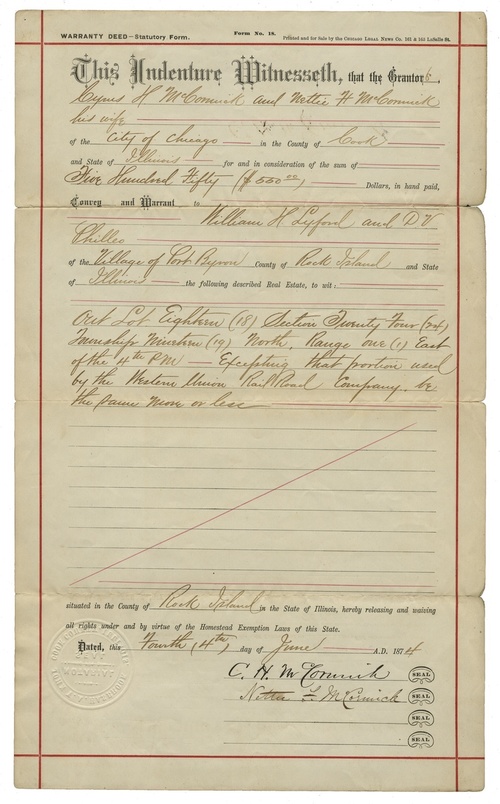 WARRANTY DEED—Statutory Form.
Form No. 18.
Printed and for Sale by the CHICAGO LEGAL NEWS CO. 151 & 153 LaSalle St.
This Indenture Witnesseth, that the Grantors,
Cyrus H McCormick and Nettie F McCormick
his wife
of the City of Chicago in the County of Cook
and State of Illinois for and in consideration of the sum of
Five Hundred Fifty ($550 00) Dollars, in hand paid,
Convey and Warrant to William H Lyford and D V
Philleo
of the Village of Port Byron County of Rock Island and State
of Illinois the following described Real Estate, to wit:
Out Lot Eighteen (18) Section Twenty Four (24)
Township Nineteen (19) North, Range one (1) East
of the 4th P.M. — Excepting that portion used
by the Western Union Rail Road Company be
the same more or less
situated in the County of Rock Island in the State of Illinois, hereby releasing and waiving
all rights under and by virtue of the Homestead Exemption Laws of this State.
Dated, this Fourth (4th) day of June A.D. 1874
C. H. McCormick SEAL
Nettie F. McCormick SEAL
SEAL
SEAL